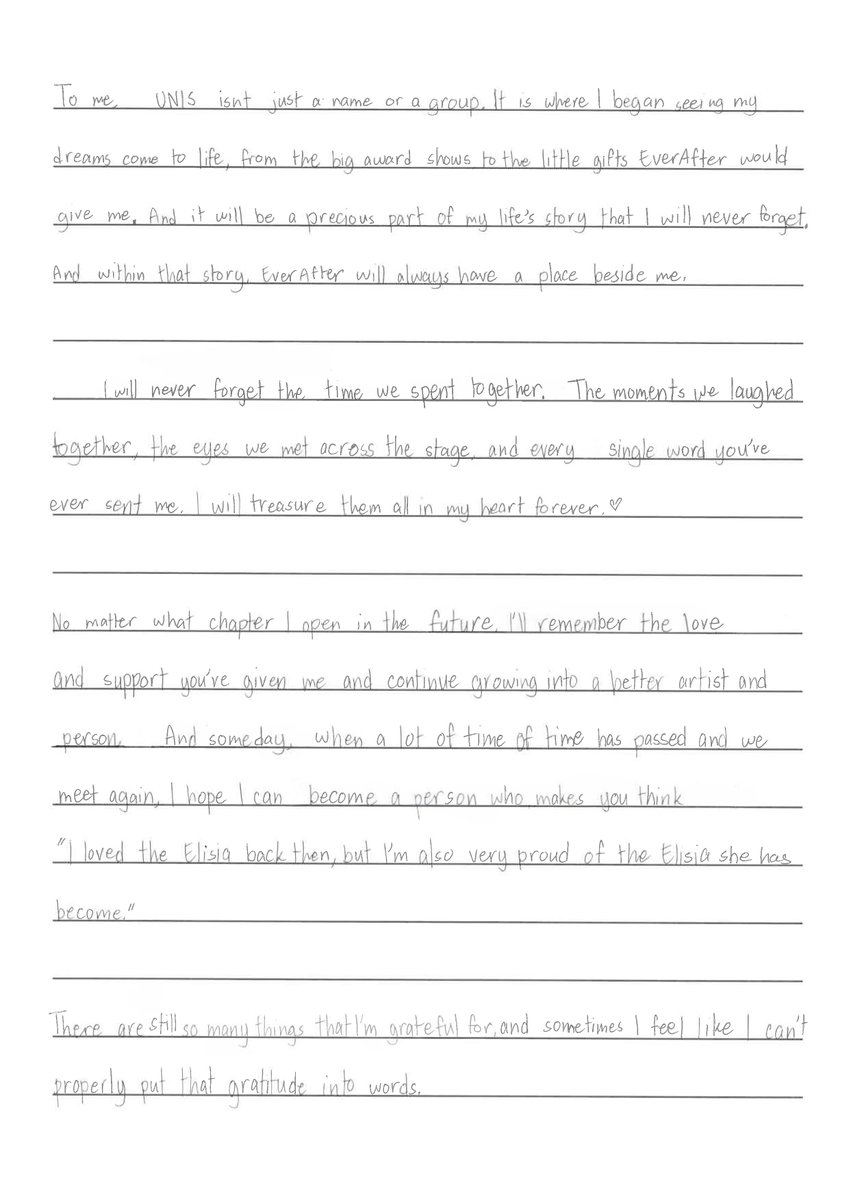 To me, UNIS isnt just a name or a group. It is where I began seeing my
dreams come to life, from the big award shows to the little gifts EverAfter would
give me. And it will be a precious part of my life's story that I will never forget.
And within that story, EverAfter will always have a place beside me.
I will never forget the time we spent together. The moments we laughed
together, the eyes we met across the stage, and every single word you've
ever sent me. I will treasure them all in my heart forever.♡
No matter what chapter I open in the future, I'll remember the love
and support you've given me and continue growing into a better artist and
person. And someday, when a lot of time of time has passed and we
meet again, I hope I can become a person who makes you think
"I loved the Elisia back then, but I'm also very proud of the Elisia she has
become."
There are still so many things that I'm grateful for, and sometimes I feel like I can't
properly put that gratitude into words.